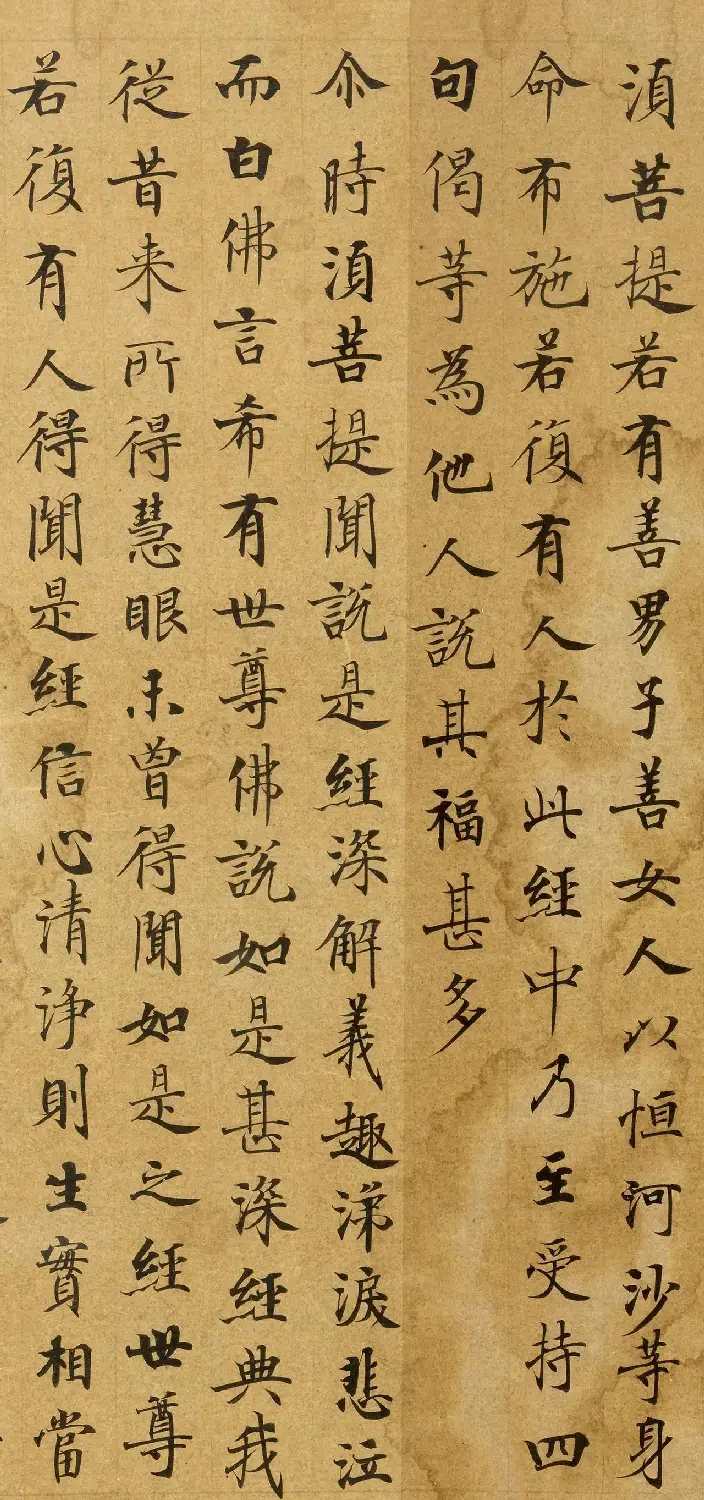 須菩提若有善男子善女人以恒河沙等身
命布施若復有人於此經中乃至受持四
句偈等為他人說其福甚多
尒時須菩提聞說是經深解義趣涕淚悲泣
而白佛言希有世尊佛說如是甚深經典我
從昔来所得慧眼未曾得聞如是之經世尊
若復有人得聞是經信心清淨則生實相當